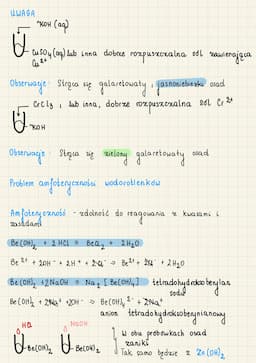 UWAGA
KOH (aq)
CuSO₄ (aq) lub inna dobrze rozpuszczalna sól zawierająca
Cu²⁺
Obserwacje: Strąca się galaretowaty, jasnoniebieski osad
CrCl₃, lub inna, dobrze rozpuszczalna sól Cr³⁺
KOH
Obserwacje: Strąca się zielony galaretowaty osad
Problem amfoteryczności wodorotlenków
Amfoteryczność - zdolność do reagowania z kwasami i
zasadami
Be(OH)₂ + 2HCl → BeCl₂ + 2H₂O
Be²⁺ + 2OH⁻ + 2H⁺ + 2Cl⁻ → Be²⁺ + 2Cl⁻ + 2H₂O
Be(OH)₂ + 2NaOH → Na₂[Be(OH)₄] tetrahydroksoberylan
sodu
Be(OH)₂ + 2Na⁺ + 2OH⁻ → Be(OH)₄²⁻ + 2Na⁺
anion tetrahydroksoberylanowy
HCl
NaOH
Be(OH)₂
Be(OH)₂
W obu probówkach osad
zanika
Tak samo będzie z Zn(OH)₂